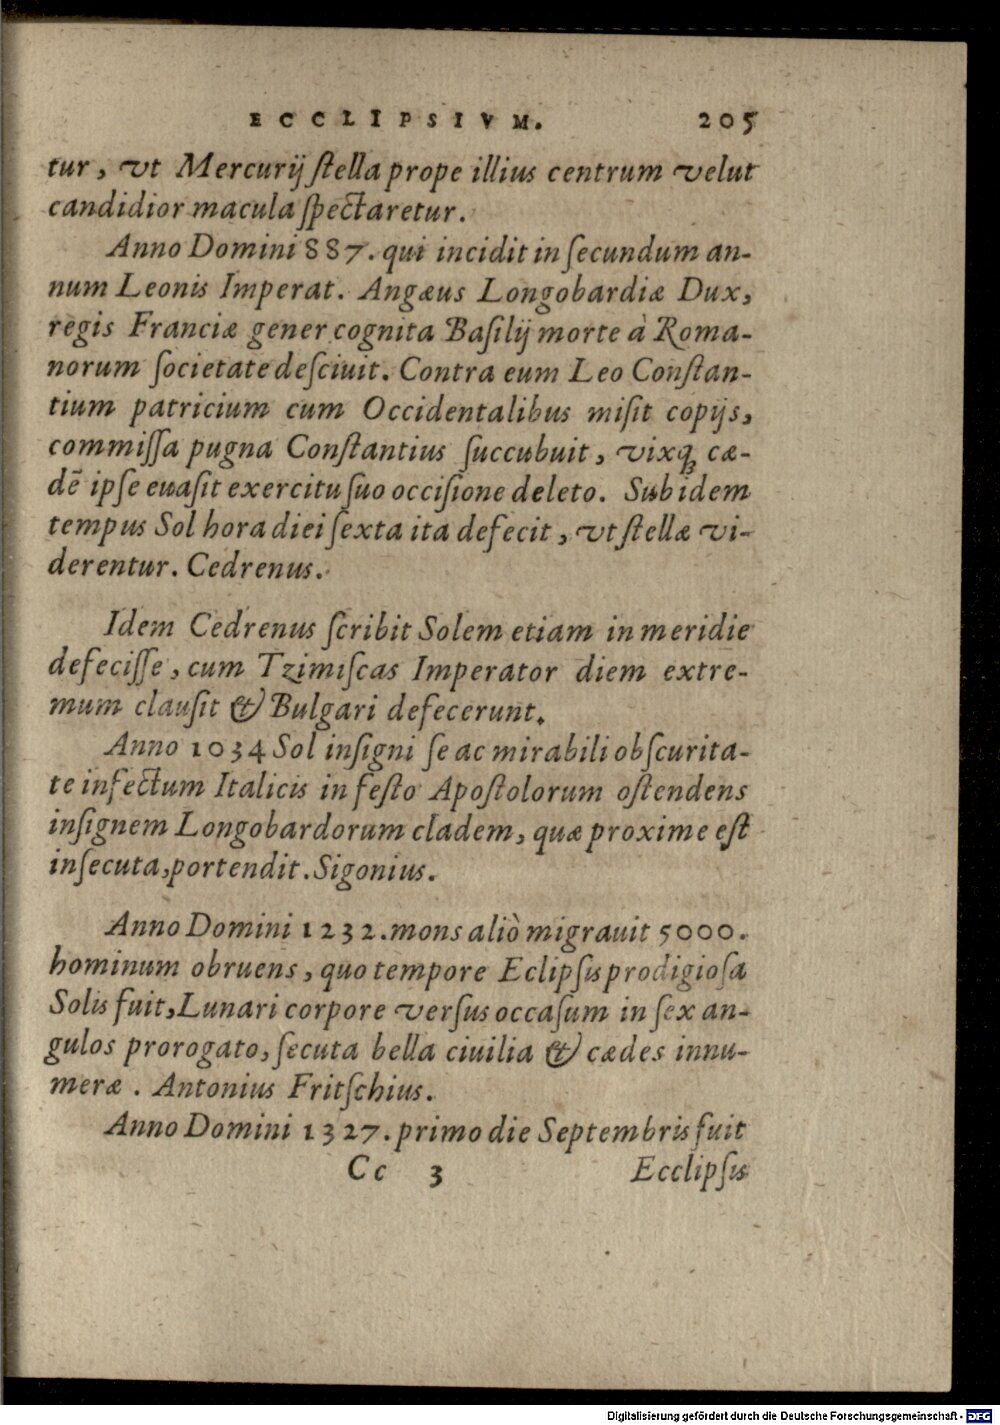 ECCLIPSIVM. 205
tur, vt Mercurij ſtella prope illius centrum velut
candidior macula ſpectaretur.
Anno Domini 887. qui incidit in ſecundum an-
num Leonis Imperat. Angæus Longobardiæ Dux,
regis Franciæ gener cognita Baſilij morte à Roma-
norum ſocietate deſciuit. Contra eum Leo Conſtan-
tium patricium cum Occidentalibus miſit copijs,
commiſſa pugna Conſtantius ſuccubuit, vixq́ꝫ cæ-
dē ipſe euaſit exercitu ſuo occiſione deleto. Sub idem
tempus Sol hora diei ſexta ita defecit, vt ſtellæ vi-
derentur. Cedrenus.
Idem Cedrenus ſcribit Solem etiam in meridie
defeciſſe, cum Tzimiſcas Imperator diem extre-
mum clauſit & Bulgari defecerunt.
Anno 1034 Sol inſigni ſe ac mirabili obſcurita-
te infectum Italicis in feſto Apoſtolorum oſtendens
inſignem Longobardorum cladem, quæ proxime eſt
inſecuta, portendit. Sigonius.
Anno Domini 1232. mons aliò migrauit 5000.
hominum obruens, quo tempore Eclipſis prodigioſa
Solis fuit, Lunari corpore verſus occaſum in ſex an-
gulos prorogato, ſecuta bella ciuilia & cædes innu-
meræ. Antonius Fritſchius.
Anno Domini 1327. primo die Septembris fuit
Cc 3 Ecclipſis
Digitalisierung gefördert durch die Deutsche Forschungsgemeinschaft - DFG